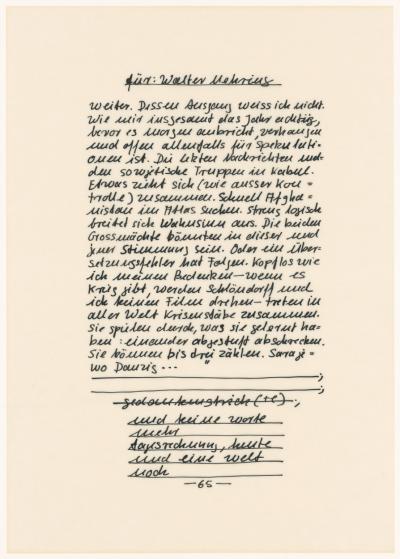 für: Walter Mehring
weiter. Dessen Ausgang weiss ich nicht.
Wie mir insgesamt das Jahr achtzig,
bevor es morgen anbricht, verhangen
und offen allenfalls für Spekulati-
onen ist. Die letzten Nachrichten mel-
den sowjetische Truppen in Kabul.
Etwas zieht sich (wie ausser Kon =
trolle) zusammen. Schnell Afgha =
nistan im Atlas suchen. Streng logisch
breitet sich Wahnsinn aus. Die beiden
Grossmächte könnten in dieser und
jener Stimmung sein. Oder ein Über-
setzungsfehler hat Folgen. Kopflos wie
ich meinen Bedenken – wenn es
Krieg gibt, werden Schlöndorff und
ich keinen Film drehen – treten in
aller Welt Krisenstäbe zusammen.
Sie spielen durch, was sie gelernt ha-
ben : einander abgestuft abschrecken.
Sie können bis drei zählen. Saraje =
wo Danzig ... "
;
;
gedankenstrich (+e) ;
und keine worte
mehr
tagsrechnung, heute
und eine welt
noch
— 65 —